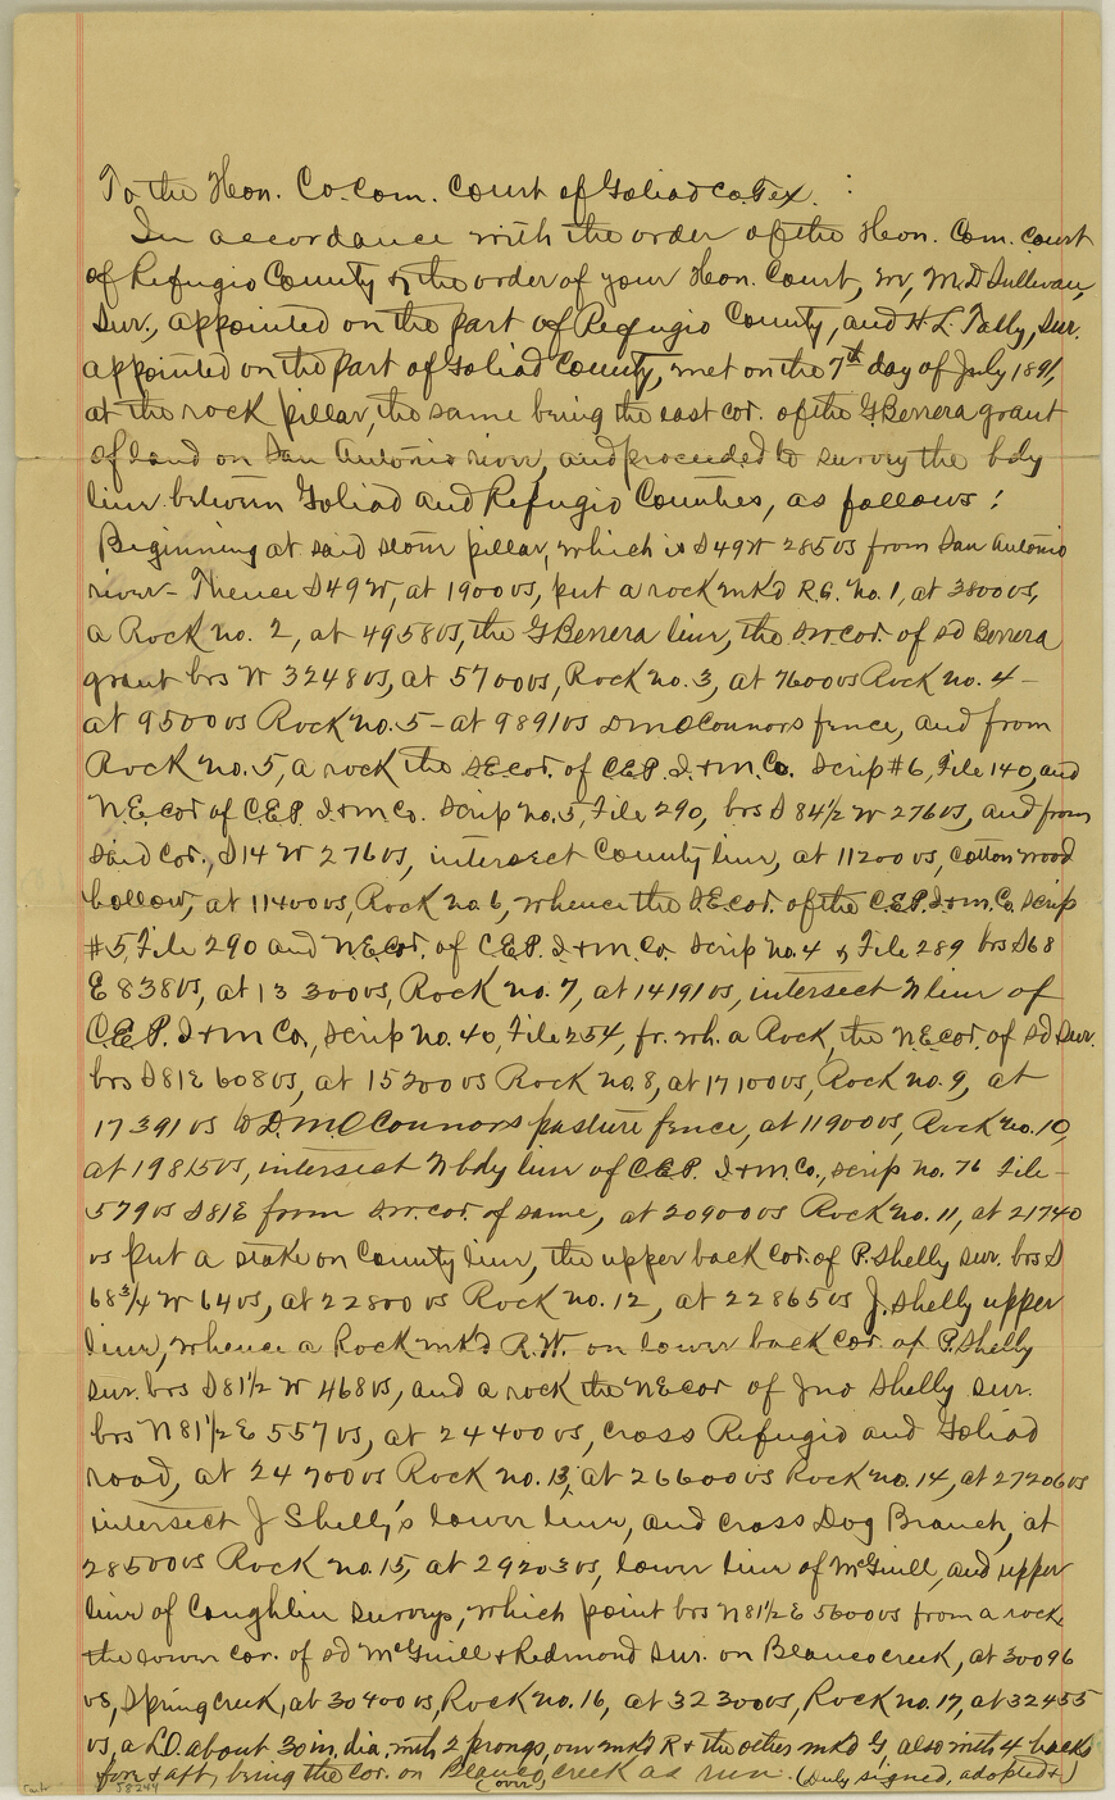 To the Hon. Co. Com. Court of Goliad Co. Tex. :
In accordance with the order of the Hon. Com. Court
of Refugio County & the order of your Hon. Court, we, M.D Sullivan,
Sur., appointed on the part of Refugio County, and H. L. Tally, Sur.
appointed on the part of Goliad County, met on the 7th day of July 1891,
at the rock pillar, the same being the east cor. of the G Berrera grant
of land on San Antonio river, and proceeded to survey the bdy
line between Goliad and Refugio Counties, as follows:
Beginning at said stone pillar, which is S 49 W 285 vs from San Antonio
river - Thence S 49 W, at 1900 vs, put a rock mk'd R.G. No. 1, at 3800 vs,
a Rock no. 2, at 4958 vs, the G Berrera line, the S.W. cor. of sd Berrera
grant brs W 3248 vs, at 5700 vs, Rock no. 3, at 7600 vs Rock no. 4 -
at 9500 vs Rock no. 5 - at 9891 vs D M O Connors fence, and from
Rock no. 5, a rock the S.E. cor. of C.E.P. I. + M. Co. Scrip #6, File 140, and
N.E. cor of C.E.P. I. + M Co. Scrip no. 5, File 290, brs S 84 1/2 W 276 vs, and from
said Cor., S 14 W 276 vs, intersect County line, at 11200 vs, cottonwood
hollow, at 11400 vs, Rock no. 6, whence the S.E. cor. of the C.E.P. I. + M. Co. Scrip
#5, File 290 and N.E. Cor. of C.E.P. I. + M. Co. Scrip no. 4 & File 289 brs S 68
E 838 vs, at 13 300 vs, Rock no. 7, at 14191 vs, intersect N line of
C.E.P. I + M Co., Scrip no. 40, File 254, fr. wh. a Rock, the N.E. cor. of sd Sur.
brs S 81 E 608 vs, at 15200 vs Rock no. 8, at 17100 vs, Rock no. 9, at
17391 vs to D. M. O Connors pasture fence, at 11900 vs, Rock no. 10,
at 19815 vs, intersect N bdy line of C.E.P. I. + M. Co., Scrip no. 76 File -
579 vs S 81 E from S.W. cor. of same, at 20900 vs Rock no. 11, at 21740
vs put a stake on County line, the upper back Cor. of P. Shelly Sur. brs S
68 3/4 W 64 vs, at 22800 vs Rock no. 12, at 22865 vs J. Shelly upper
line, whence a Rock mk'd R. W. on lower back Cor. of P. Shelly
Sur. brs S 81 1/2 W 468 vs, and a rock the N E cor of Jno Shelly Sur.
brs N 81 1/2 E 557 vs, at 24400 vs, cross Refugio and Goliad
road, at 24 700 vs Rock no. 13, at 26600 vs Rock no. 14, at 27206 vs
intersect J Shelly's lower line, and cross Dog Branch, at
28500 vs Rock no. 15, at 29203 vs, lower line of McGuill, and upper
line of Coughlin surveys, which point brs N 81 1/2 E 5600 vs from a rock,
the lower cor. of sd McGuill + Redmond Sur. on Blanco creek, at 30096
vs, Spring creek, at 30400 vs, Rock no. 16, at 32300 vs, Rock no. 17, at 32455
vs, a L.O. about 30 in. dia. with 2 prongs, one mkd R + the other mk'd G, also with 4 hacks
fore + aft, being the cor. on Blanco creek as run. (Duly signed, adopted +)
(over)
58244